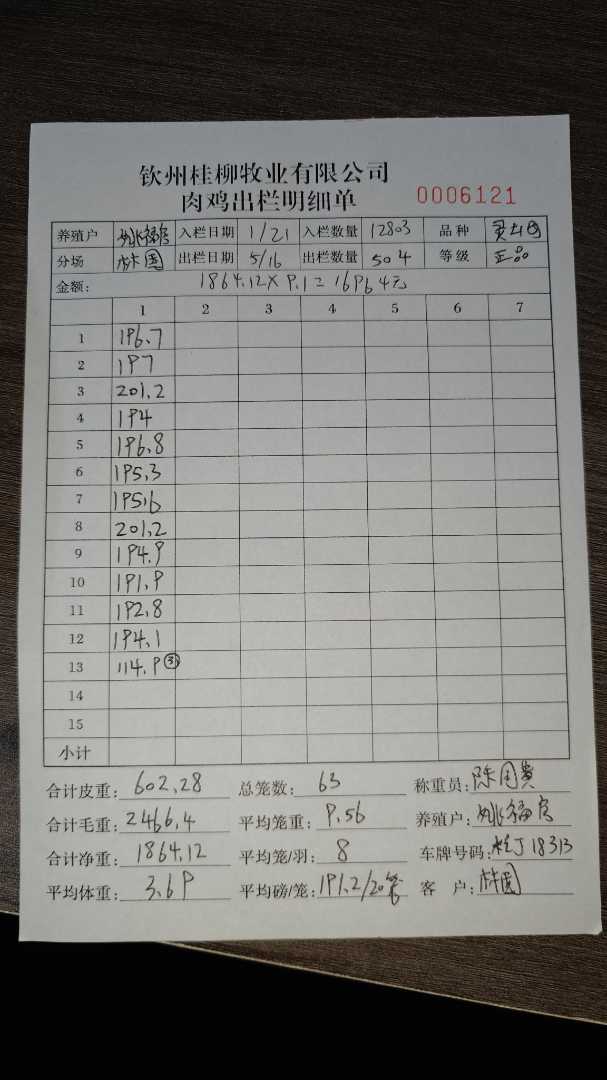 钦州桂柳牧业有限公司
肉鸡出栏明细单 0006121
养殖户 姚福富 入栏日期 1/21 入栏数量 12803 品种
分场 林园 出栏日期 5/16 出栏数量 504 等级 正品
金额: 1864.12×9.1=16964元
1 2 3 4 5 6 7
1 196.7
2 197
3 201.2
4 194
5 196.8
6 195.3
7 195.6
8 201.2
9 194.9
10 191.9
11 192.8
12 194.1
13 114.9 ③
14
15
小计
合计皮重: 602.28 总笼数: 63 称重员:
合计毛重: 2466.4 平均笼重: 9.56 养殖户: 姚福富
合计净重: 1864.12 平均笼/羽: 8 车牌号码: 18313
平均体重: 3.69 平均磅/笼: 191.2/20笼 客 户: 林园